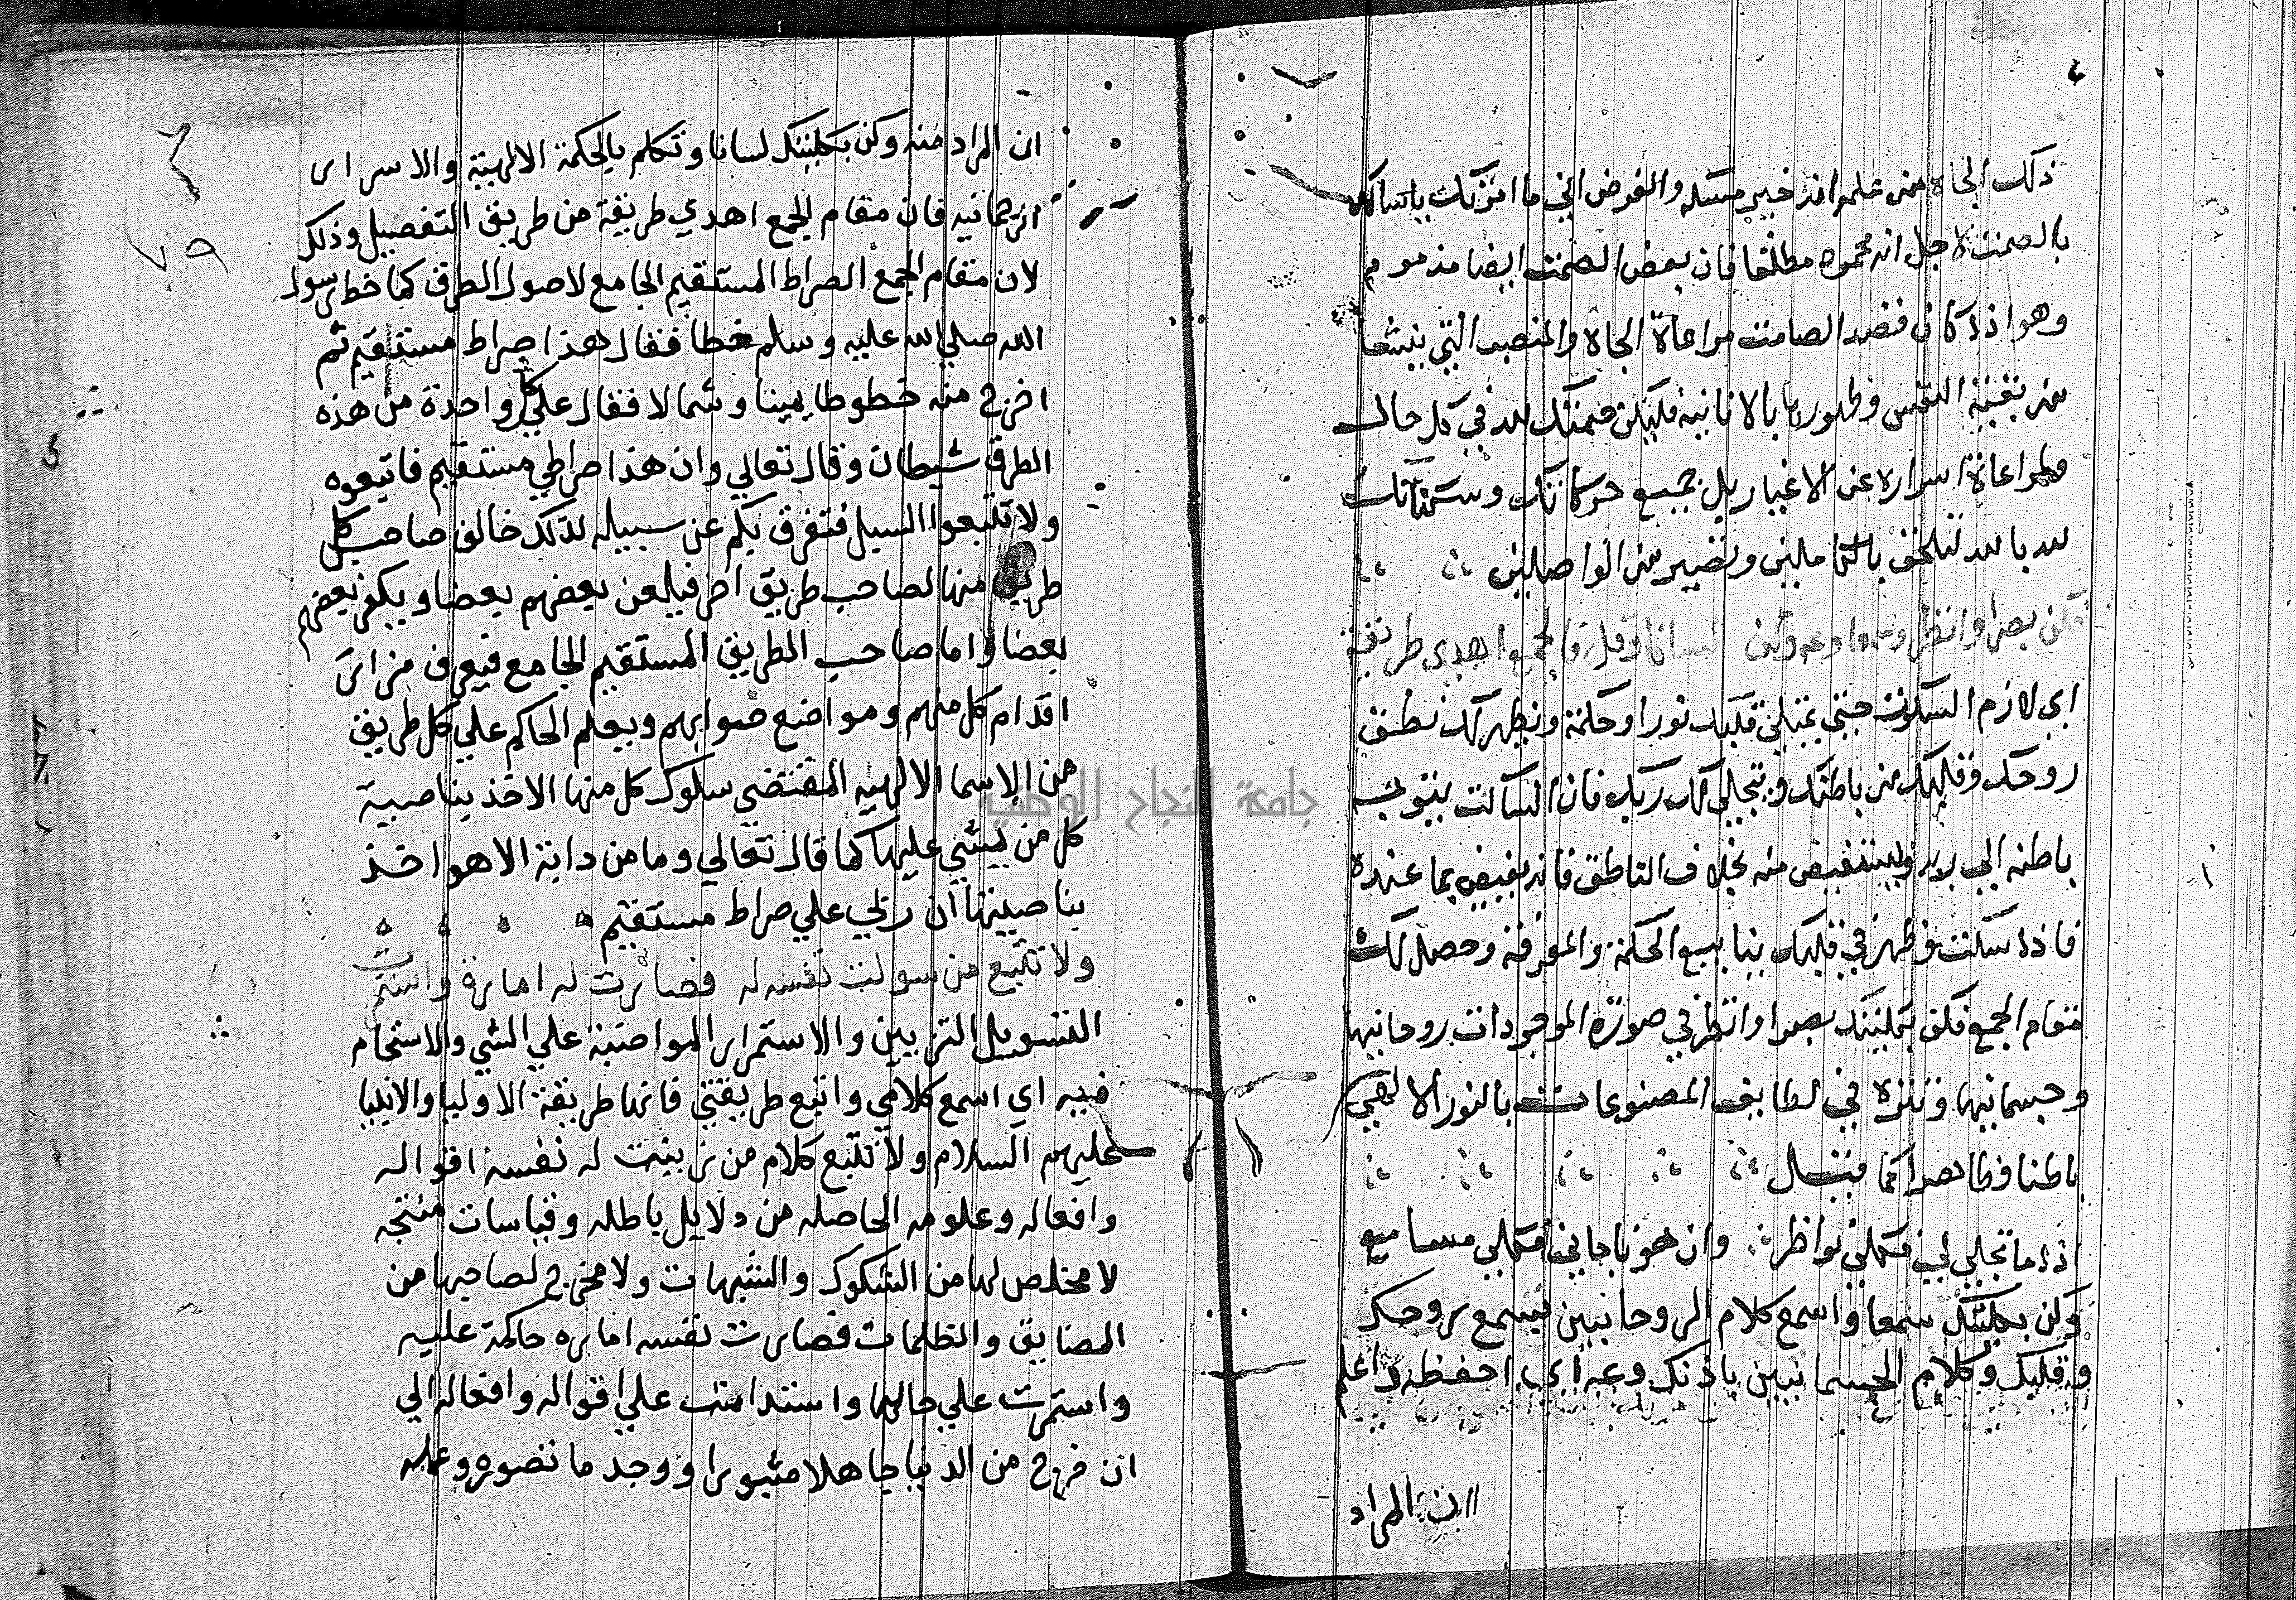 ذلك الجاه من علمه انه خبير مسئله والغرض اني ما امرتك باتساكك
بالصمت لاجل انه محمود مطلقا فان بعض الصمت ايضا مذموم
وهو اذا كان قصد الصامت مراعاة الجاه والمنصب التي ينشعا
من بقية النفس وظهورها بالانانية فليكن صمتك لله في كل حال
ولمراعاة اسراره عن الاغيار بل جميع حركاتك وسكناتك
لله بالله لتلحق بالكاملين وتصير من الواصلين
فكن بصرا وانظر وسمعا وعه وكن لسانا وقل فالجمع اهدى طريقة
اي لازم السكوت حتى يمتلي قلبك نورا وحكمة ويظهر لك نطق
روحك وقلبك من باطنك ويتجلي لك ربك فان الساكت يتوجه
باطنه الي ربه ويستفيض منه بخلاف الناطق فانه يفيض بما عنده
فاذا سكت وظهر في قلبك ينابيع الحكمة والمعرفة وحصل لك
مقام الجمع فكن بكليتك بصرا وانظر في صورة الموجودات روحانيها
وجسمانيها وتنزه في لطايف المصنوعات بالنور الالهي
باطنا وظاهرا كما قال
اذا ما تجلي لي فكلي نواظر وان هو ناجاني فكلي مسامع
وكن بكليتك سمعا واسمع كلام الروحانيين فيسمع بروحك
وقلبك وكلام الجسمانيين باذنك وعه اي احفظه واعلم
ان المراد
٧٩
ان المراد منه وكن بكليتك لسانا وتكلم بالحكمة الالهية والاسرار
الرحمانيه فان مقام الجمع اهدي طريقة من طريق التفصيل وذلك
لان مقام الجمع الصراط المستقيم الجامع لاصول الطرق كما خط رسول
الله صلي الله عليه وسلم خطا فقال هذا صراط مستقيم ثم
اخرج منه خطوطا يمينا وشمالا فقال علي كل واحدة من هذه
الطرق شيطان وقال تعالي وان هذا صراطي مستقيم فاتبعوه
ولا تتبعوا السبل فتفرق بكم عن سبيله لذلك خالف صاحب كل
طريق منها لصاحب طريق اخر فيلعن بعضهم بعضا ويكفر بعضهم
بعضا واما صاحب الطريق المستقيم الجامع فيعرف مزالق
اقدام كل منهم ومواضع صوابهم ويعلم الحاكم علي كل طريق
من الاسما الالهيه المقتضي سلوك كل منها الاخذ بناصية
كل من يمشي عليها كما قال تعالي وما من دابة الا هو اخذ
بناصيتها ان ربي علي صراط مستقيم
ولا تتبع من سولت نفسه له فصارت له امارة واستمرت
التسويل التزيين والاستمرار المواضبة علي الشي والاستحكام
فيه اي اسمع كلامي واتبع طريقتي فانها طريقة الاوليا والانبيا
عليهم السلام ولا تتبع كلام من زينت له نفسه اقواله
وافعاله وعلومه الحاصله من دلايل باطله وقياسات منتجه
لا مخلص لها من الشكوك والشبهات ولا مخرج لصاحبها من
المضايق والظلمات فصارت نفسه اماره حاكمة عليه
واستمرت علي حالها واستدامت علي اقواله وافعاله الي
ان خرج من الدنيا جاهلا مثبورا ووجد ما تصوره وعمله